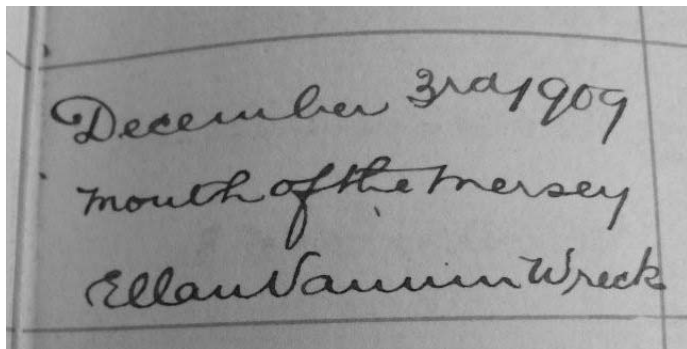 December 3rd 1909
Mouth of the Mersey
Ellan Vannin Wreck